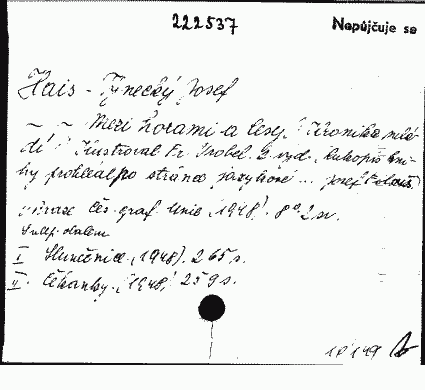 222537 Nepůjčuje se
Hais - Týnecký Josef
~ ~ Mezi horami a lesy. Kronika mlá-
dí. Ilustroval Fr. Vrobel. 2. vyd. Rukopis kni-
hy prohlédl po stránce jazykové ... Josef
Praze Čes. graf. unie (1948). 8° 2 sv.
I Slunčnice. (1948). 265 s.
II. Čekanky. (1948) 259 s.
149